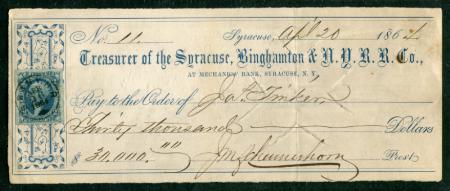 No. 11. Syracuse, Apl 20 186
Treasurer of the Syracuse, Binghamton & N.Y. R.R. Co.,
AT MECHANICS' BANK, SYRACUSE, N.Y.
Pay to the Order of Jo. Tinker
Thirty thousand Dollars
$ 30,000.00 J M Schermerhorn Prest